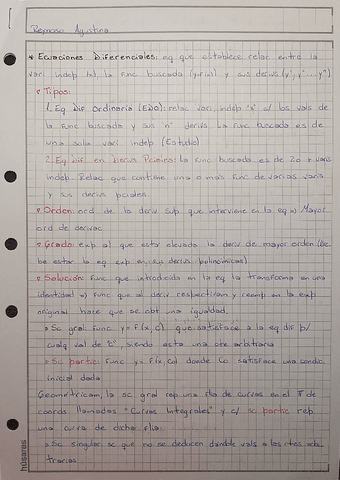 Reinoso Agustina
* Ecuaciones Diferenciales: eq que establece relac entre la
vari indep (x), la func buscada (y=f(x)) y sus derivs (y', y'' ... yⁿ)
Tipos:
1. Eq Dif Ordinaria (EDO): relac vari indep "x" c/ los vals de
la func buscada y sus n° derivs. La func buscada es de
una sola vari indep (Estudio)
2. Eq Dif en Derivs Parciales: La func buscada es de 2 o + varis
indep. Relac que contiene una o mas func de varias varis
y sus derivs pciales.
Orden: ord de la deriv sup que interviene en la eq => Mayor
ord de derivac
Grado: exp al que esta elevada la deriv de mayor orden (de
be estar la eq exp en sus derivs polinomicas)
Solución: func que introducida en la eq la transforma en una
identidad => func que al deriv respectivam y reemp en la exp
original hace que se obt una igualdad.
Sc gral func y = f(x,c) que satisface a la eq dif p/
cualq val de "c", siendo esta una cte arbitraria
Sc partic: func y= f(x,co) donde co satisface una condic
inicial dada
Geometricam, la sc gral rep una flia de curvas en el π de
coords llamadas "Curvas Integrales" y c/ sc partic rep
una curva de dicha flia.
Sc singular: sc que no se deducen dandole vals a las ctes arbi
trarias
húsares